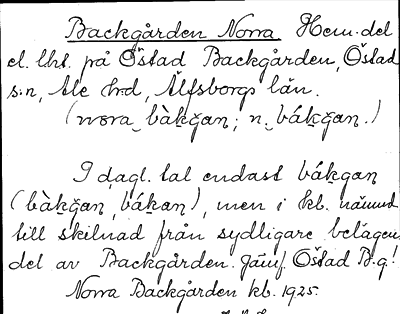 Backgården Norra Hem.del
el. lht. på Östad Backgården, Östad
s:n, Ale hrd, Älfsborgs län.
(nωra_bàkǧan; n._bákǧan.)
I dagl. tal endast bákgan
(bàkǧan, bákan), men i kb. nämnd
till skilnad från sydligare belägen
del av Backgården. Jämf. Östad B.g!
Norra Backgården kb. 1925.